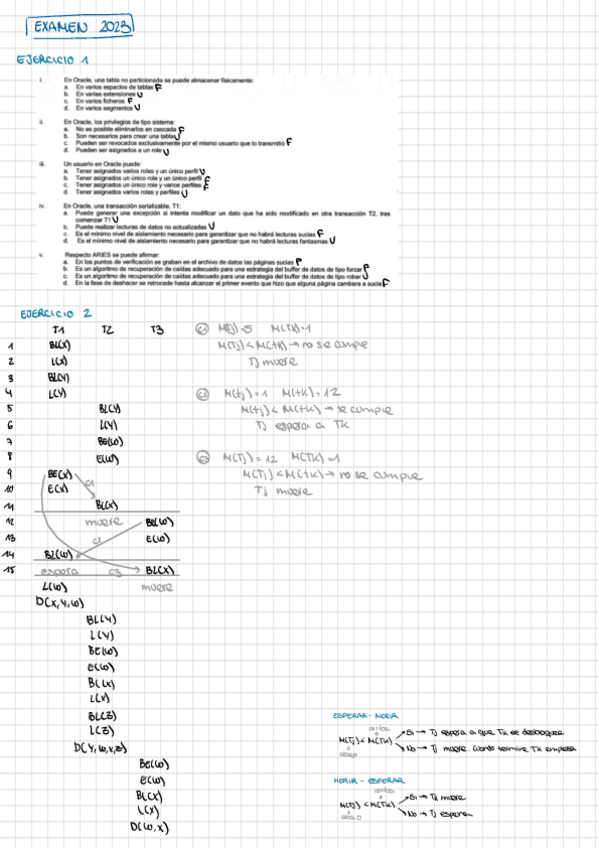 EXAMEN 2023
EJERCICIO 1
i. En Oracle, una tabla no particionada se puede almacenar físicamente:
a. En varios espacios de tablas F
b. En varias extensiones V
c. En varios ficheros F
d. En varios segmentos V
ii. En Oracle, los privilegios de tipo sistema:
a. No es posible eliminarlos en cascada F
b. Son necesarios para crear una tabla V
c. Pueden ser revocados exclusivamente por el mismo usuario que lo transmitió F
d. Pueden ser asignados a un role V
iii. Un usuario en Oracle puede:
a. Tener asignados varios roles y un único perfil V
b. Tener asignados un único role y un único perfil F
c. Tener asignados un único role y varios perfiles F
d. Tener asignados varios roles y perfiles V
iv. En Oracle, una transacción serializable, T1:
a. Puede generar una excepción si intenta modificar un dato que ha sido modificado en otra transacción T2, tras
comenzar T1 V
b. Puede realizar lecturas de datos no actualizadas V
c. Es el mínimo nivel de aislamiento necesario para garantizar que no habrá lecturas sucias F
d. Es el mínimo nivel de aislamiento necesario para garantizar que no habrá lecturas fantasmas V
v. Respecto ARIES se puede afirmar:
a. En los puntos de verificación se graban en el archivo de datos las páginas sucias F
b. Es un algoritmo de recuperación de caídas adecuado para una estrategia del buffer de datos de tipo forzar F
c. Es un algoritmo de recuperación de caídas adecuado para una estrategia del buffer de datos de tipo robar V
d. En la fase de deshacer se retrocede hasta alcanzar el primer evento que hizo que alguna página cambiara a sucia F
EJERCICIO 2
T1 T2 T3
1 BL(X)
2 L(X)
3 BL(Y)
4 L(Y)
5 BL(Y)
6 L(Y)
7 BE(W)
8 E(W)
9 BE(X) C1
10 E(X)
11 BL(X)
12 muere BE(W)
13 C2 E(W)
14 BL(W)
15 espera C3 BL(X)
L(W) muere
D(X,Y,W)
BL(Y)
L(Y)
BE(W)
E(W)
BL(X)
L(X)
BL(Z)
L(Z)
D(Y,W,X,Z)
BE(W)
E(W)
BL(X)
L(X)
D(W,X)
C1 M(Tj)=5 M(TK)=1
M(Tj)<M(TK) → no se cumple
Tj muere
M(Tj)=1 M(TK)=12
M(Tj)<M(TK) → se cumple
Tj espera a TK
M(Tj)=12 M(TK)=1
M(Tj)<M(TK) → no se cumple
Tj muere
ESPERAR - MORIR
M(Tj)<M(TK)
Si → Tj espera a que TK se desbloquee
No → Tj muere. Cuando termine TK empieza
HERIR - ESPERAR
M(Tj)<M(TK)
Si → TK muere
No → Tj espera